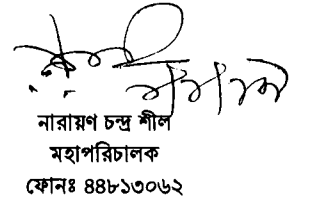 নারায়ণ চন্দ্র শীল
মহাপরিচালক
ফোনঃ ৪৪৮১৩০৬২